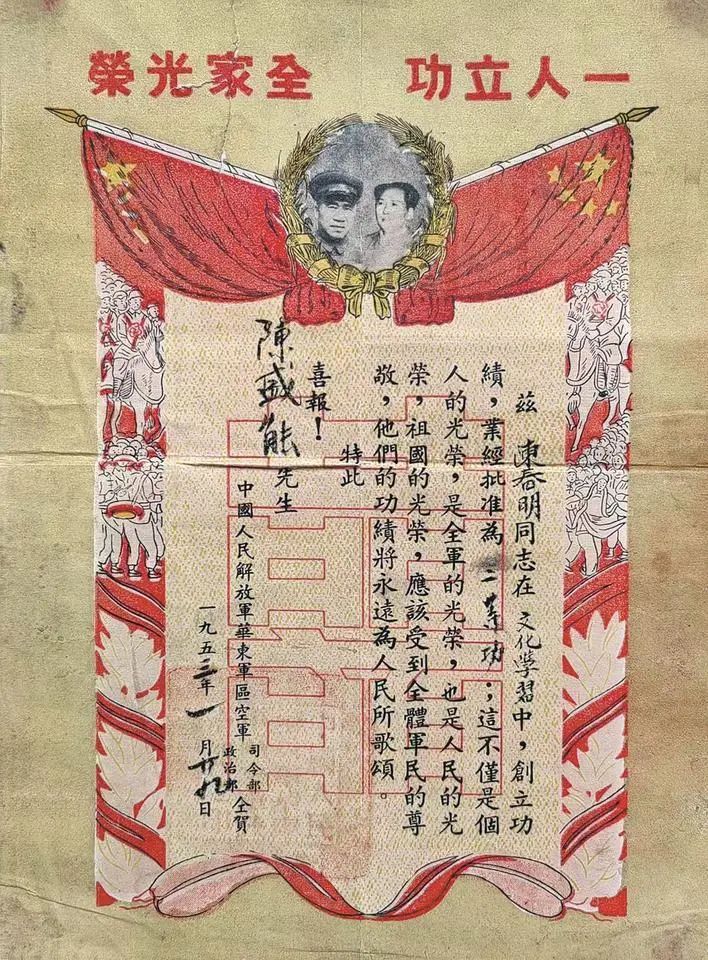 一人立功 全家光榮
茲 明同志在 文化學習中，創立功
績，業經批准為 二等功；這不僅是個
人的光榮，是全軍的光榮，也是人民的光
榮，祖國的光榮，應該受到全體軍民的尊
敬，他們的功績將永遠為人民所歌頌。
特此
喜報！
陳盛能先生
中國人民解放軍華東軍區空軍 司令部 政治部 仝賀
一九五三年一月廿九日